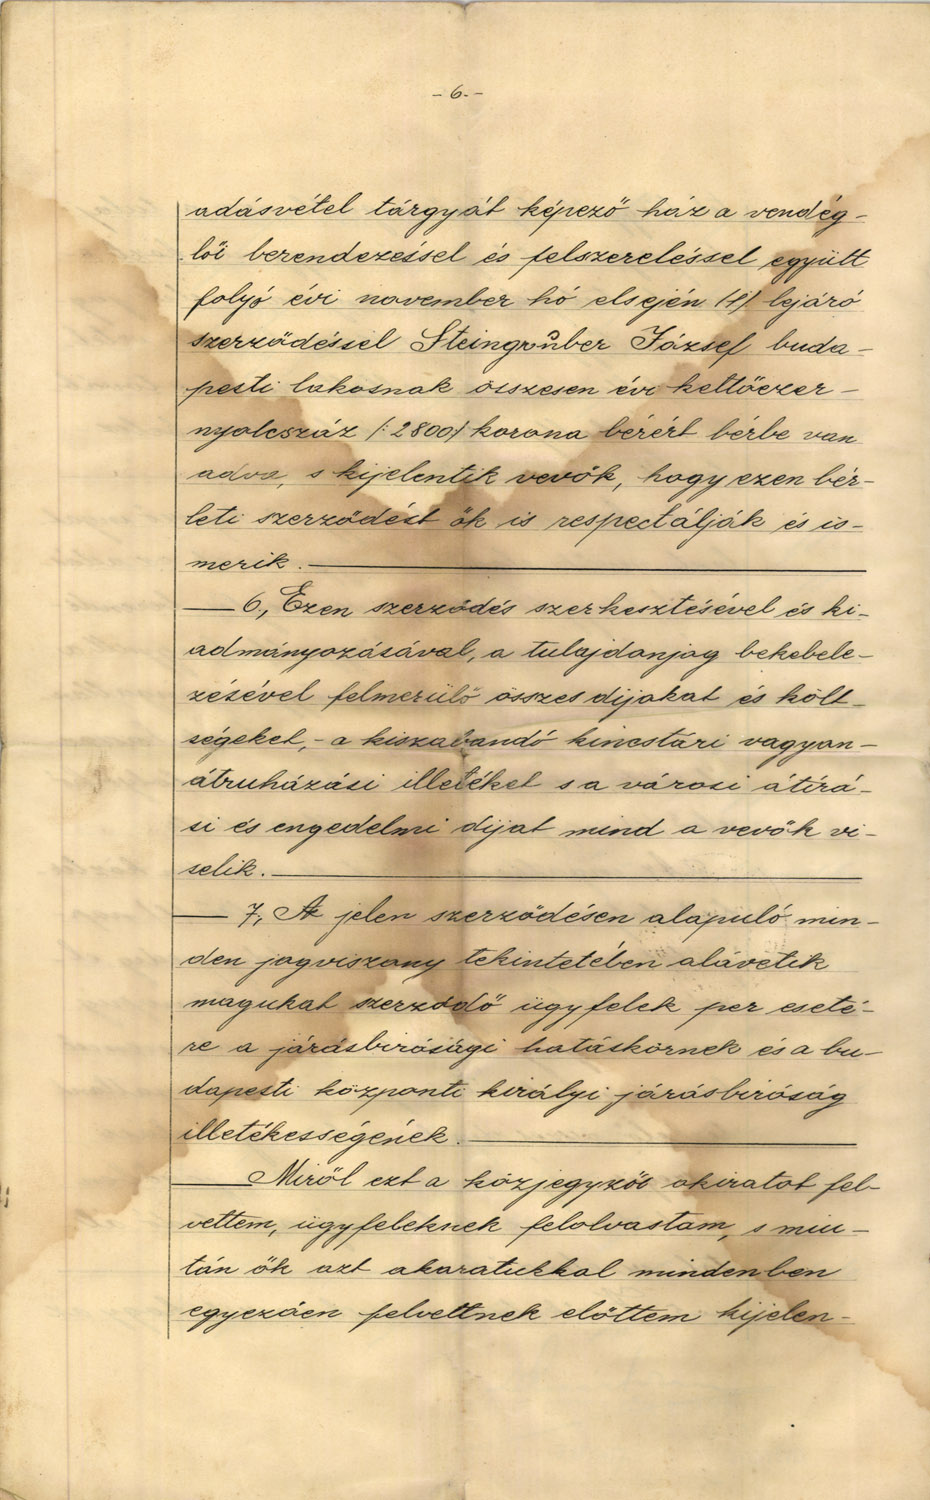 - 6. -
adásvétel tárgyát képező ház a vendég-
lői berendezéssel és felszereléssel együtt
folyó évi november hó elsején /1/ lejáró
szerződéssel Steingruber József buda-
pesti lakosnak összesen évi kettőezer-
nyolcszáz /:2800:/ korona bérért bérbe van
adva, s kijelentik vevők, hogy ezen bér-
leti szerződést ők is respectálják és is-
merik.
6., Ezen szerződés szerkesztésével és ki-
admányozásával, a tulajdonjog bekebele-
zésével felmerülő összes dijakat és költ-
ségeket, - a kiszabandó kincstári vagyon-
átruházási illetéket s a városi átírá-
si és engedelmi dijat mind a vevők vi-
selik.
7., A jelen szerződésen alapuló min-
den jogviszony tekintetében alávetik
magukat szerződő ügyfelek per eseté-
re a járásbirósági hatáskörnek és a bu-
dapesti központi királyi járásbiróság
illetékességének.
Miről ezt a közjegyzői okiratot fel-
vettem, ügyfeleknek felolvastam, s miu-
tán ők azt akaratukkal mindenben
egyezően felvettnek előttem kijelen-